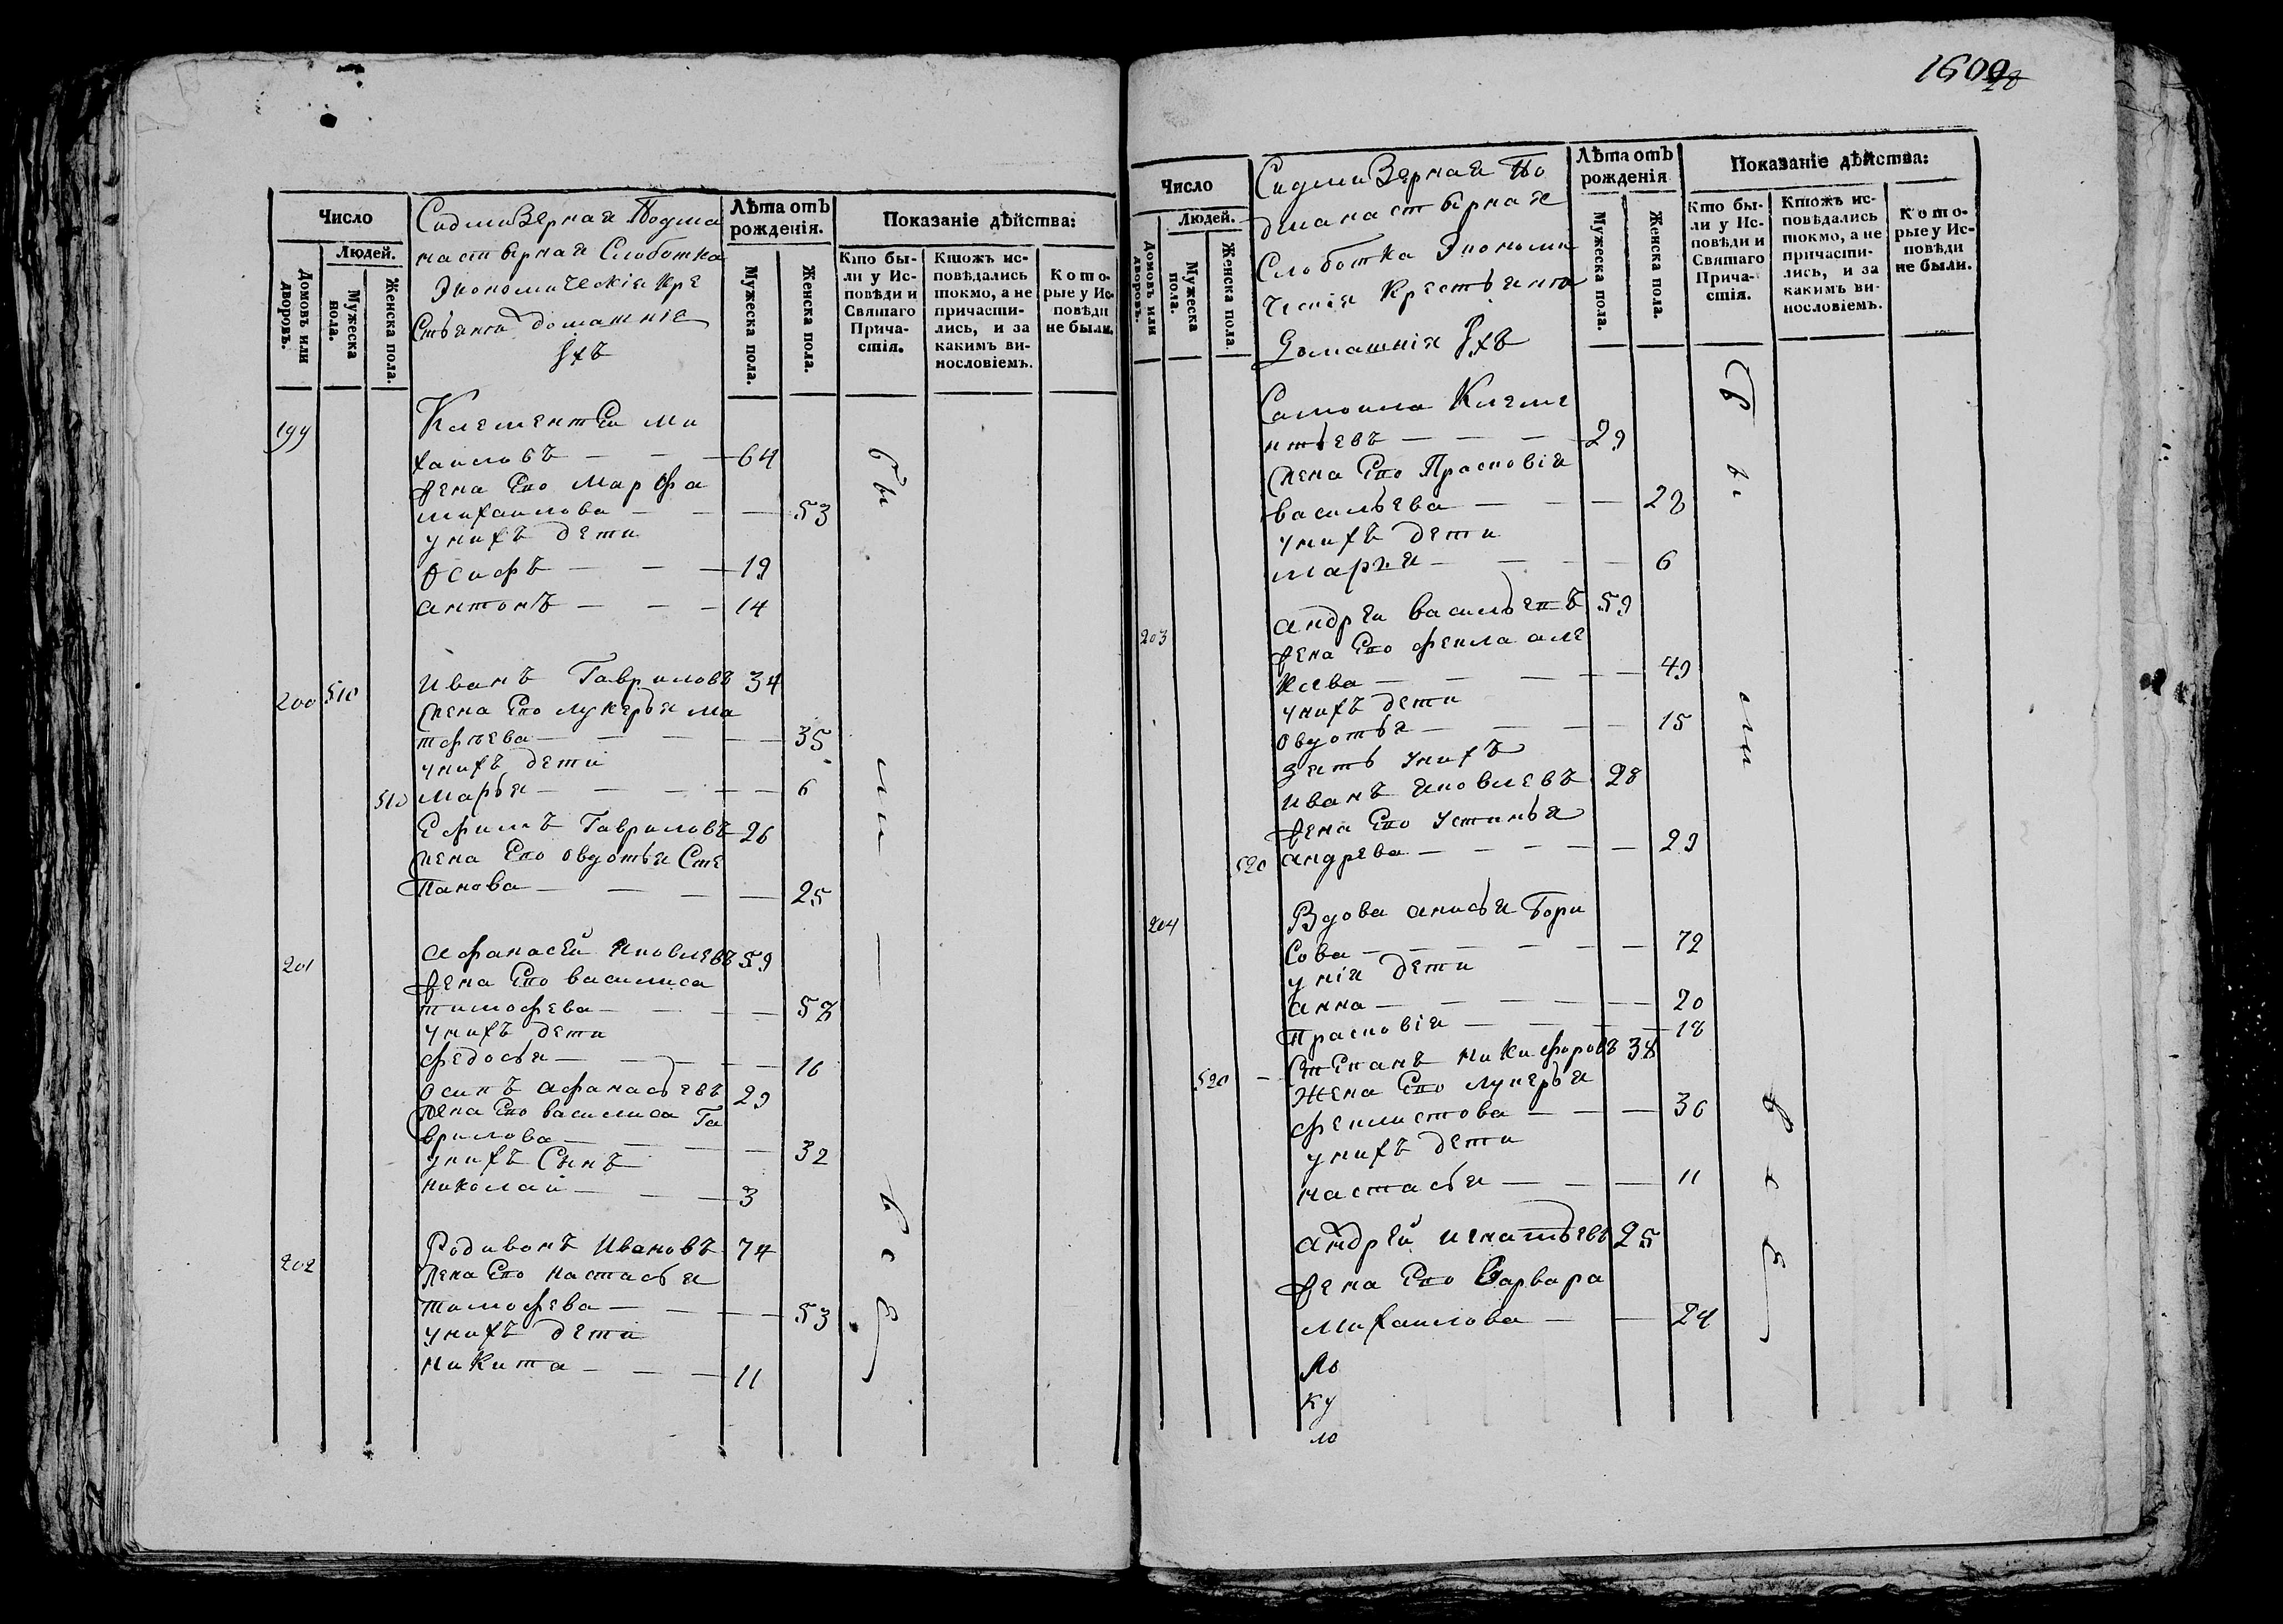 Число
Людей.
Домовъ или дворовъ.
Мужеска пола.
Женска пола.
СидмиЗернаꙗ Подмо
настернаꙗ Слоботка
Экономическiꙗ кре
стьянѣ домашнiе
ихъ
Лѣта отъ рожденія.
Мужеска пола.
Женска пола.
Показаніе дѣйства:
Кто бы-
ли у Ис-
повѣди и
Святаго
Прича-
стія.
Ктожъ ис-
повѣдались
токмо, а не
причасти-
лись, и за
какимъ ви-
нословіемъ.
Кото-
рые у Ис-
повѣди
не были.
199 Клементеи ми
хаиловъ — — — 64
жена Ево Марфа
михаилова — — — 53
унихъ дети
Осифъ — — — 19
антонъ — — — 14
200 510 Иванъ Гавриловъ 34
жена Ево лукерья ма
тфѣева — — — 35
унихъ дети
510 марья — — — 6
Ефимъ Гавриловъ 26
жена Ево овдотья Сте
панова — — — 25
201 Афанасей Яковлевъ 59
жена Ево василиса
тимофева — — — 58
унихъ дети
федосья — — — 16
Осипъ афанасьевъ 29
жена Ево василиса Га
врилова — — — 32
унихъ Сынъ
николаи — — — 3
202 Родивонъ Ивановъ 74
жена Ево настасья
тимофева — — — 53
унихъ дети
никита — — — 11
бы
ли
в
о
з
1600
28
Число
Людей.
Домовъ или дворовъ.
Мужеска пола.
Женска пола.
СидмиЗернаꙗ По
дманастернаꙗ
Слоботка Экономи
ческiꙗ крестьянѣ
Домашнiꙗ ихъ
Лѣта отъ рожденія
Мужеска пола.
Женска пола.
Показаніе дѣйства:
Кто бы-
ли у Ис-
повѣди и
Святаго
Прича-
стія.
Ктожъ ис-
повѣдались
токмо, а не
причасти-
лись, и за
какимъ ви-
нословіемъ.
Кото-
рые у Ис-
повѣди
не были.
Самоила Климе
нтьевъ — — — 29
жена Ево Прасковiя
васильева — — — 28
унихъ дети
марья — — — 6
203 андреи васильевъ 59
жена Ево фекла але
ксева — — — 49
унихъ дети
Овдотья — — — 15
зять унихъ
иванъ яковлевъ 28
жена Ево устинья
520 андрева — — — 29
204 Вдова анисья Бори
сова — — — 72
у нiя дети
анна — — — 20
Прасковiя — — — 18
520 Степанъ никифоровъ 38
Жена Ево лукерья
феклистова — — — 36
унихъ дети
настасья — — — 11
андрей игнатьевъ 25
жена Ево варвара
михаилова — — 24
бы
ли